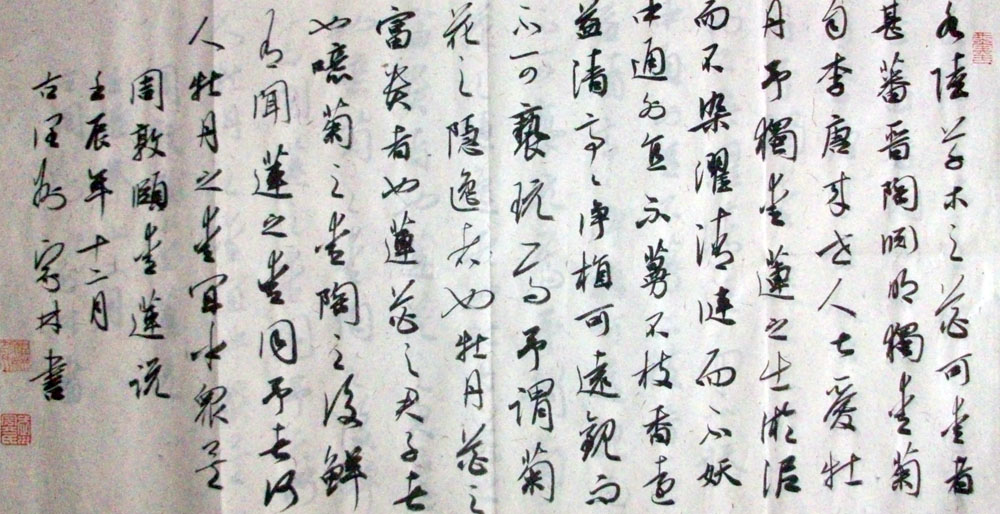 水陸草木之花可愛者
甚蕃晋陶渊明獨愛菊
自李唐来世人甚愛牡
丹予獨愛蓮之出淤泥
而不染濯清涟而不妖
中通外直不蔓不枝香远
益清亭々净植可遠觀而
不可褻玩焉予謂菊
花之隱逸者也牡丹花之
富贵者也蓮花之君子者
也噫菊之愛陶之後鮮
有聞蓮之愛同予者何
人牡丹之愛宜乎眾矣
周敦頤愛蓮说
壬辰年十二月
古润州 書